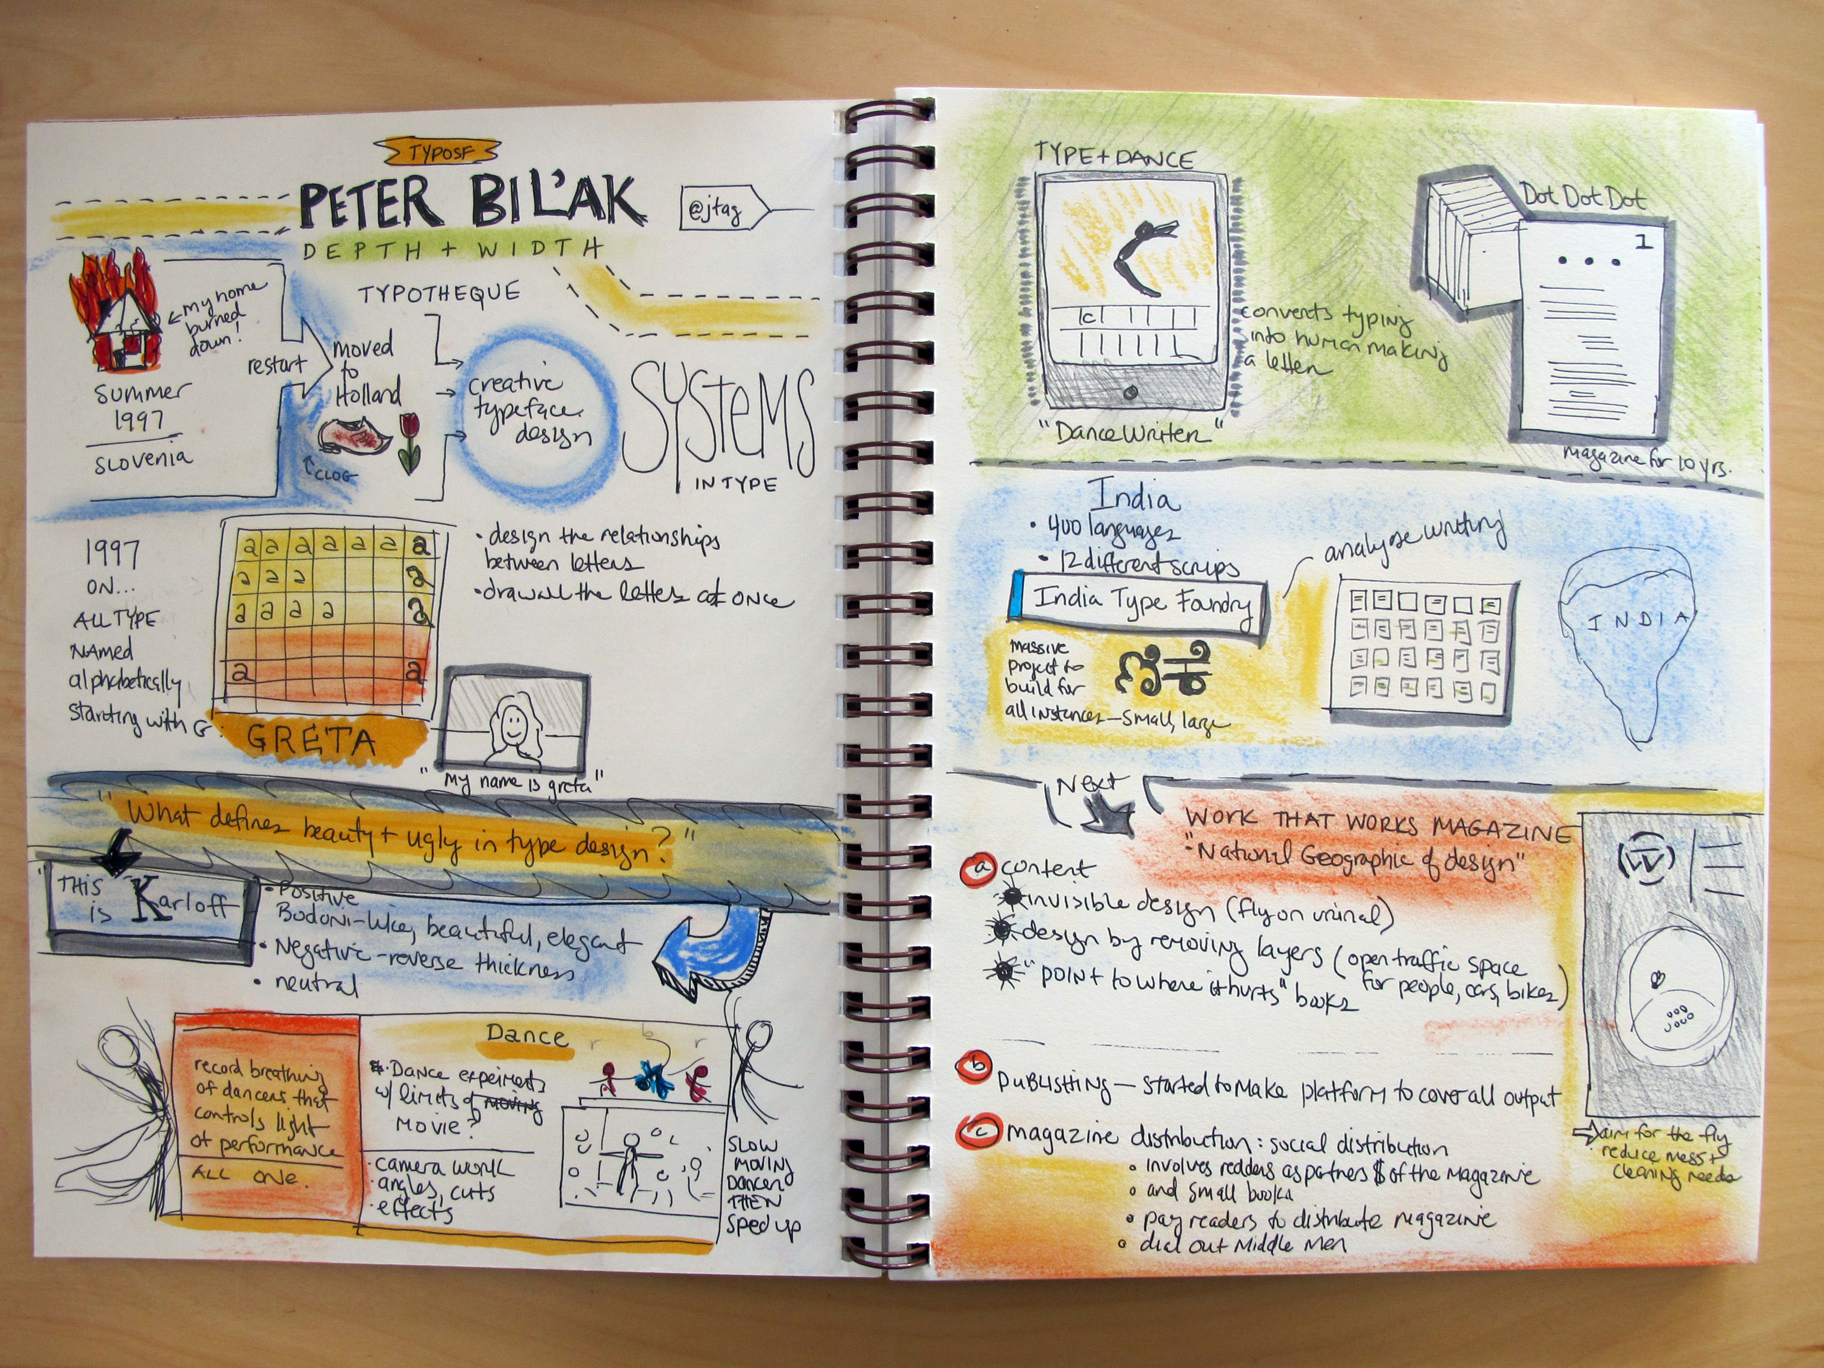 TYPOSF
PETER BIL'AK
@jtag
DEPTH + WIDTH
my home
burned
down!
Summer
1997
Slovenia
restart
moved
to
Holland
CLOG
TYPOTHEQUE
creative
typeface
design
SYSTEMS
IN TYPE
1997
ON...
ALL TYPE
NAMED
alphabetically
starting with G
a a a a a a a
a a a a
a a a a a
a a
GRETA
• design the relationships
between letters
• draw all the letters at once
"My name is greta"
"What defines beauty + ugly in type design?"
"THIS
is Karloff
• Positive
Bodoni-like, beautiful, elegant
• Negative - reverse thickness
• neutral
record breathing
of dancers that
controls light
of performance
ALL ONE.
Dance
• Dance experiments
w/ limits of moving
movie?
• camera work
• angles, cuts
• effects
r b r
SLOW
MOVING
DANCER
THEN
Sped up
TYPE + DANCE
C
"DanceWriter"
converts typing
into human making
a letter
Dot Dot Dot
1
magazine for 10 yrs.
India
• 400 languages
• 12 different scrips
India Type Foundry
analyze writing
massive
project to
build for
all instances - small, large
INDIA
Next
WORK THAT WORKS MAGAZINE
"National Geographic of design"
a content
invisible design (fly on urinal)
design by removing layers (open traffic space
for people, cars, bikes)
"point to where it hurts" books
b PUBLISHING - started to make platform to cover all output
c magazine distribution: social distribution
• involves readers as partners $ of the magazine
• and small books
• pay readers to distribute magazine
• dial out middle men
W
aim for the fly
reduce mess +
cleaning needs